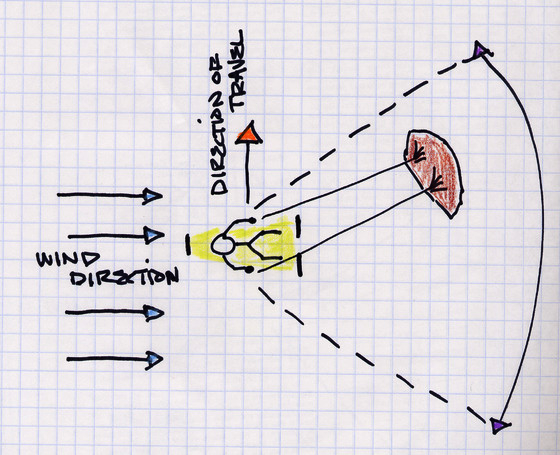 DIRECTION OF
TRAVEL
WIND
DIRECTION